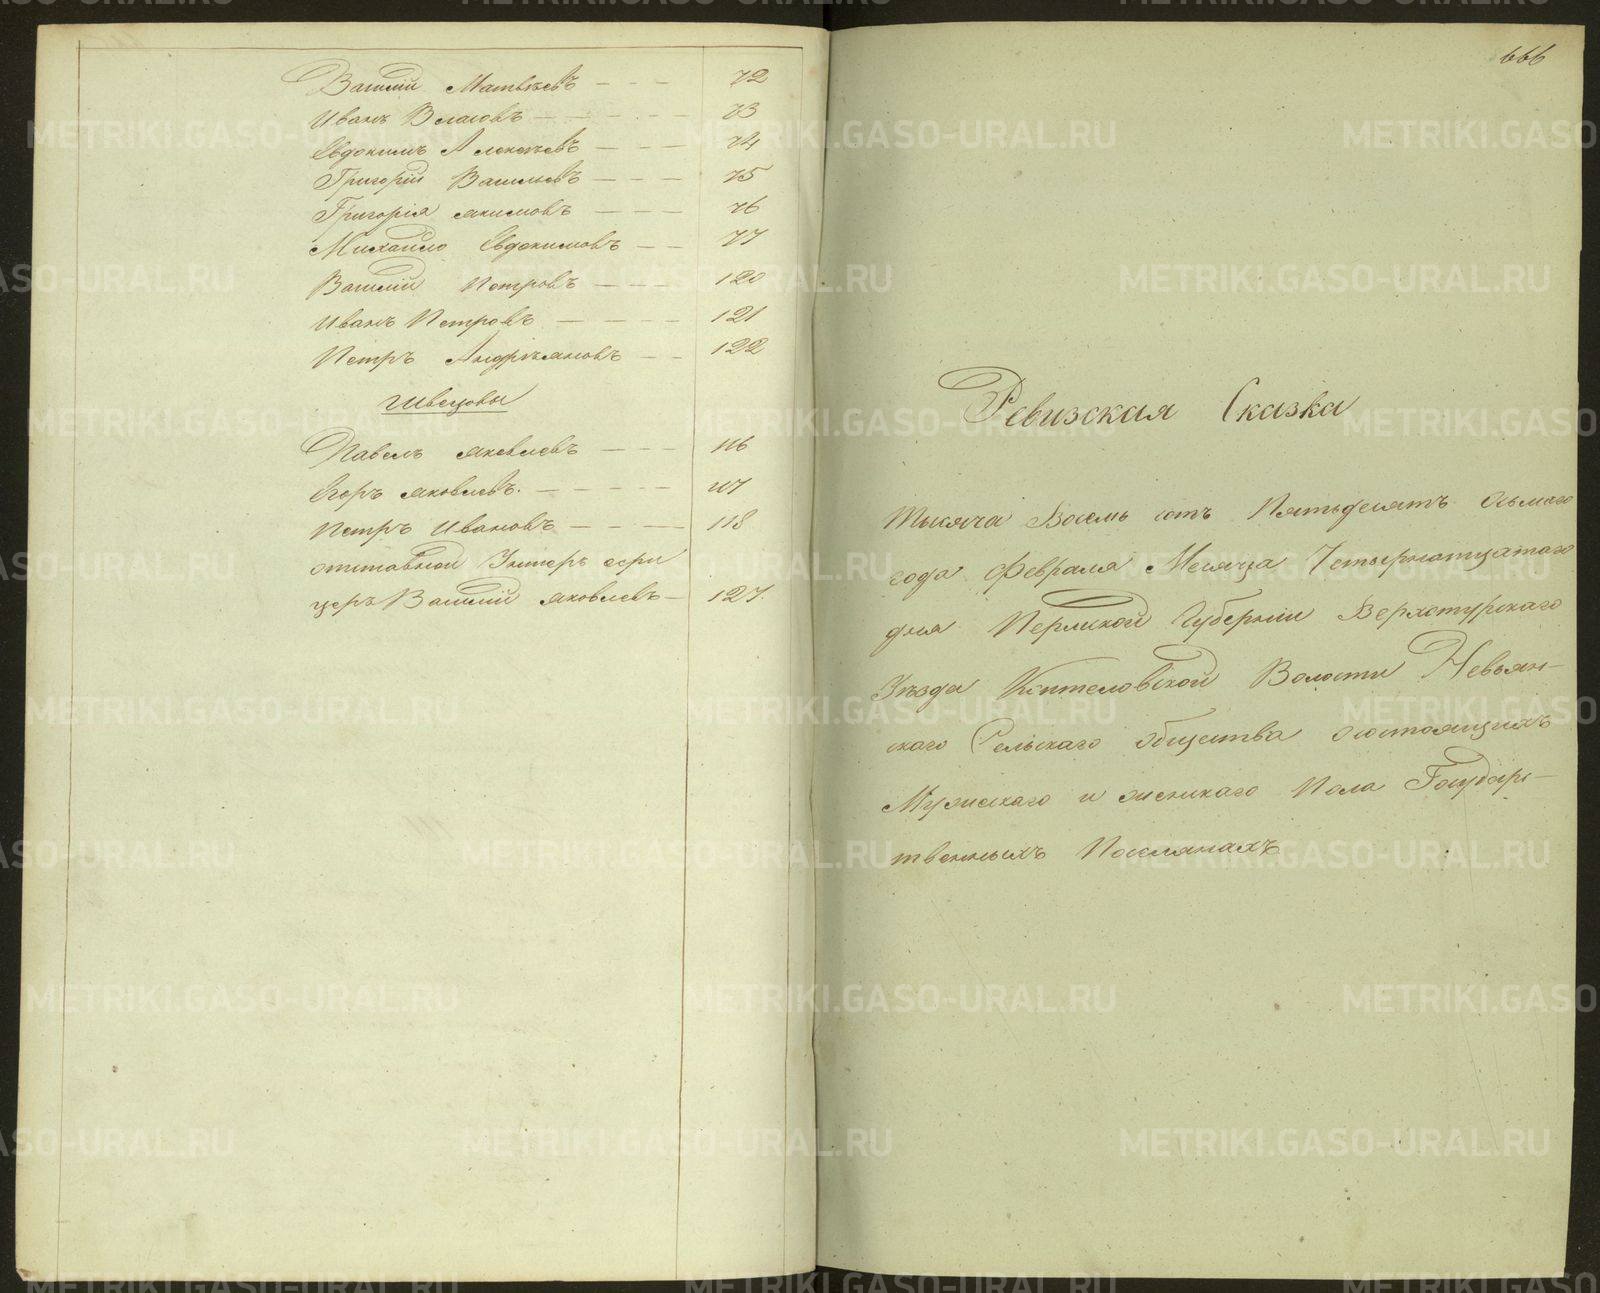 Василій Матвѣевъ — — — 72
Иванъ Власовъ — — — — — 73
Евдокимъ Алексѣевъ — — — 74
Григорій Васильевъ — — — 75
Григорія Якимовъ — — — 76
Михайло Евдокимовъ — — 77
Василій Петровъ — — — 120
Иванъ Петровъ — — — — 121
Петръ Андрѣяновъ — — 122
Швецовы
Павелъ Яковлевъ — — — 116
Егоръ Яковлевъ. — — — — — 117
Петръ Ивановъ — — — — 118
отставной Унтеръ офи
церъ Василій Яковлевъ — 127
666
Ревизская Сказка
Тысяча Восемь сотъ Пятьдесятъ Осьмаго
года Февраля Месяца Четырнатцатаго
дня Пермской Губерніи Верхотурскаго
Уѣзда Коптеловской Волости Невьян-
скаго Сельскаго общества о состоящихъ
Мужескаго и женскаго Пола Государ-
твенныхъ Поселянахъ
METRIKI.GASO-URAL.RU